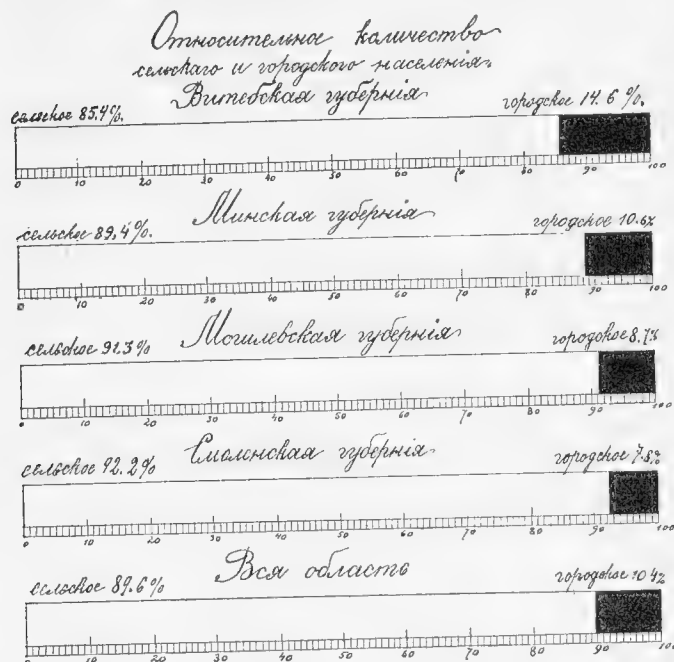 Относительное количество
сельскаго и городского населенія.
Витебская губернія
сельское 85.4%. городское 14.6 %.
0 10 20 30 40 50 60 70 80 90 100
Минская губернія
сельское 89.4%. городское 10.6%
0 10 20 30 40 50 60 70 80 90 100
Могилевская губернія
сельское 91.3% городское 8.7%
0 10 20 30 40 50 60 70 80 90 100
Смоленская губернія
сельское 92.2% городское 7.8%
0 10 20 30 40 50 60 70 80 90 100
Вся область
сельское 89.6% городское 10 4%
0 10 20 30 40 50 60 70 80 90 100